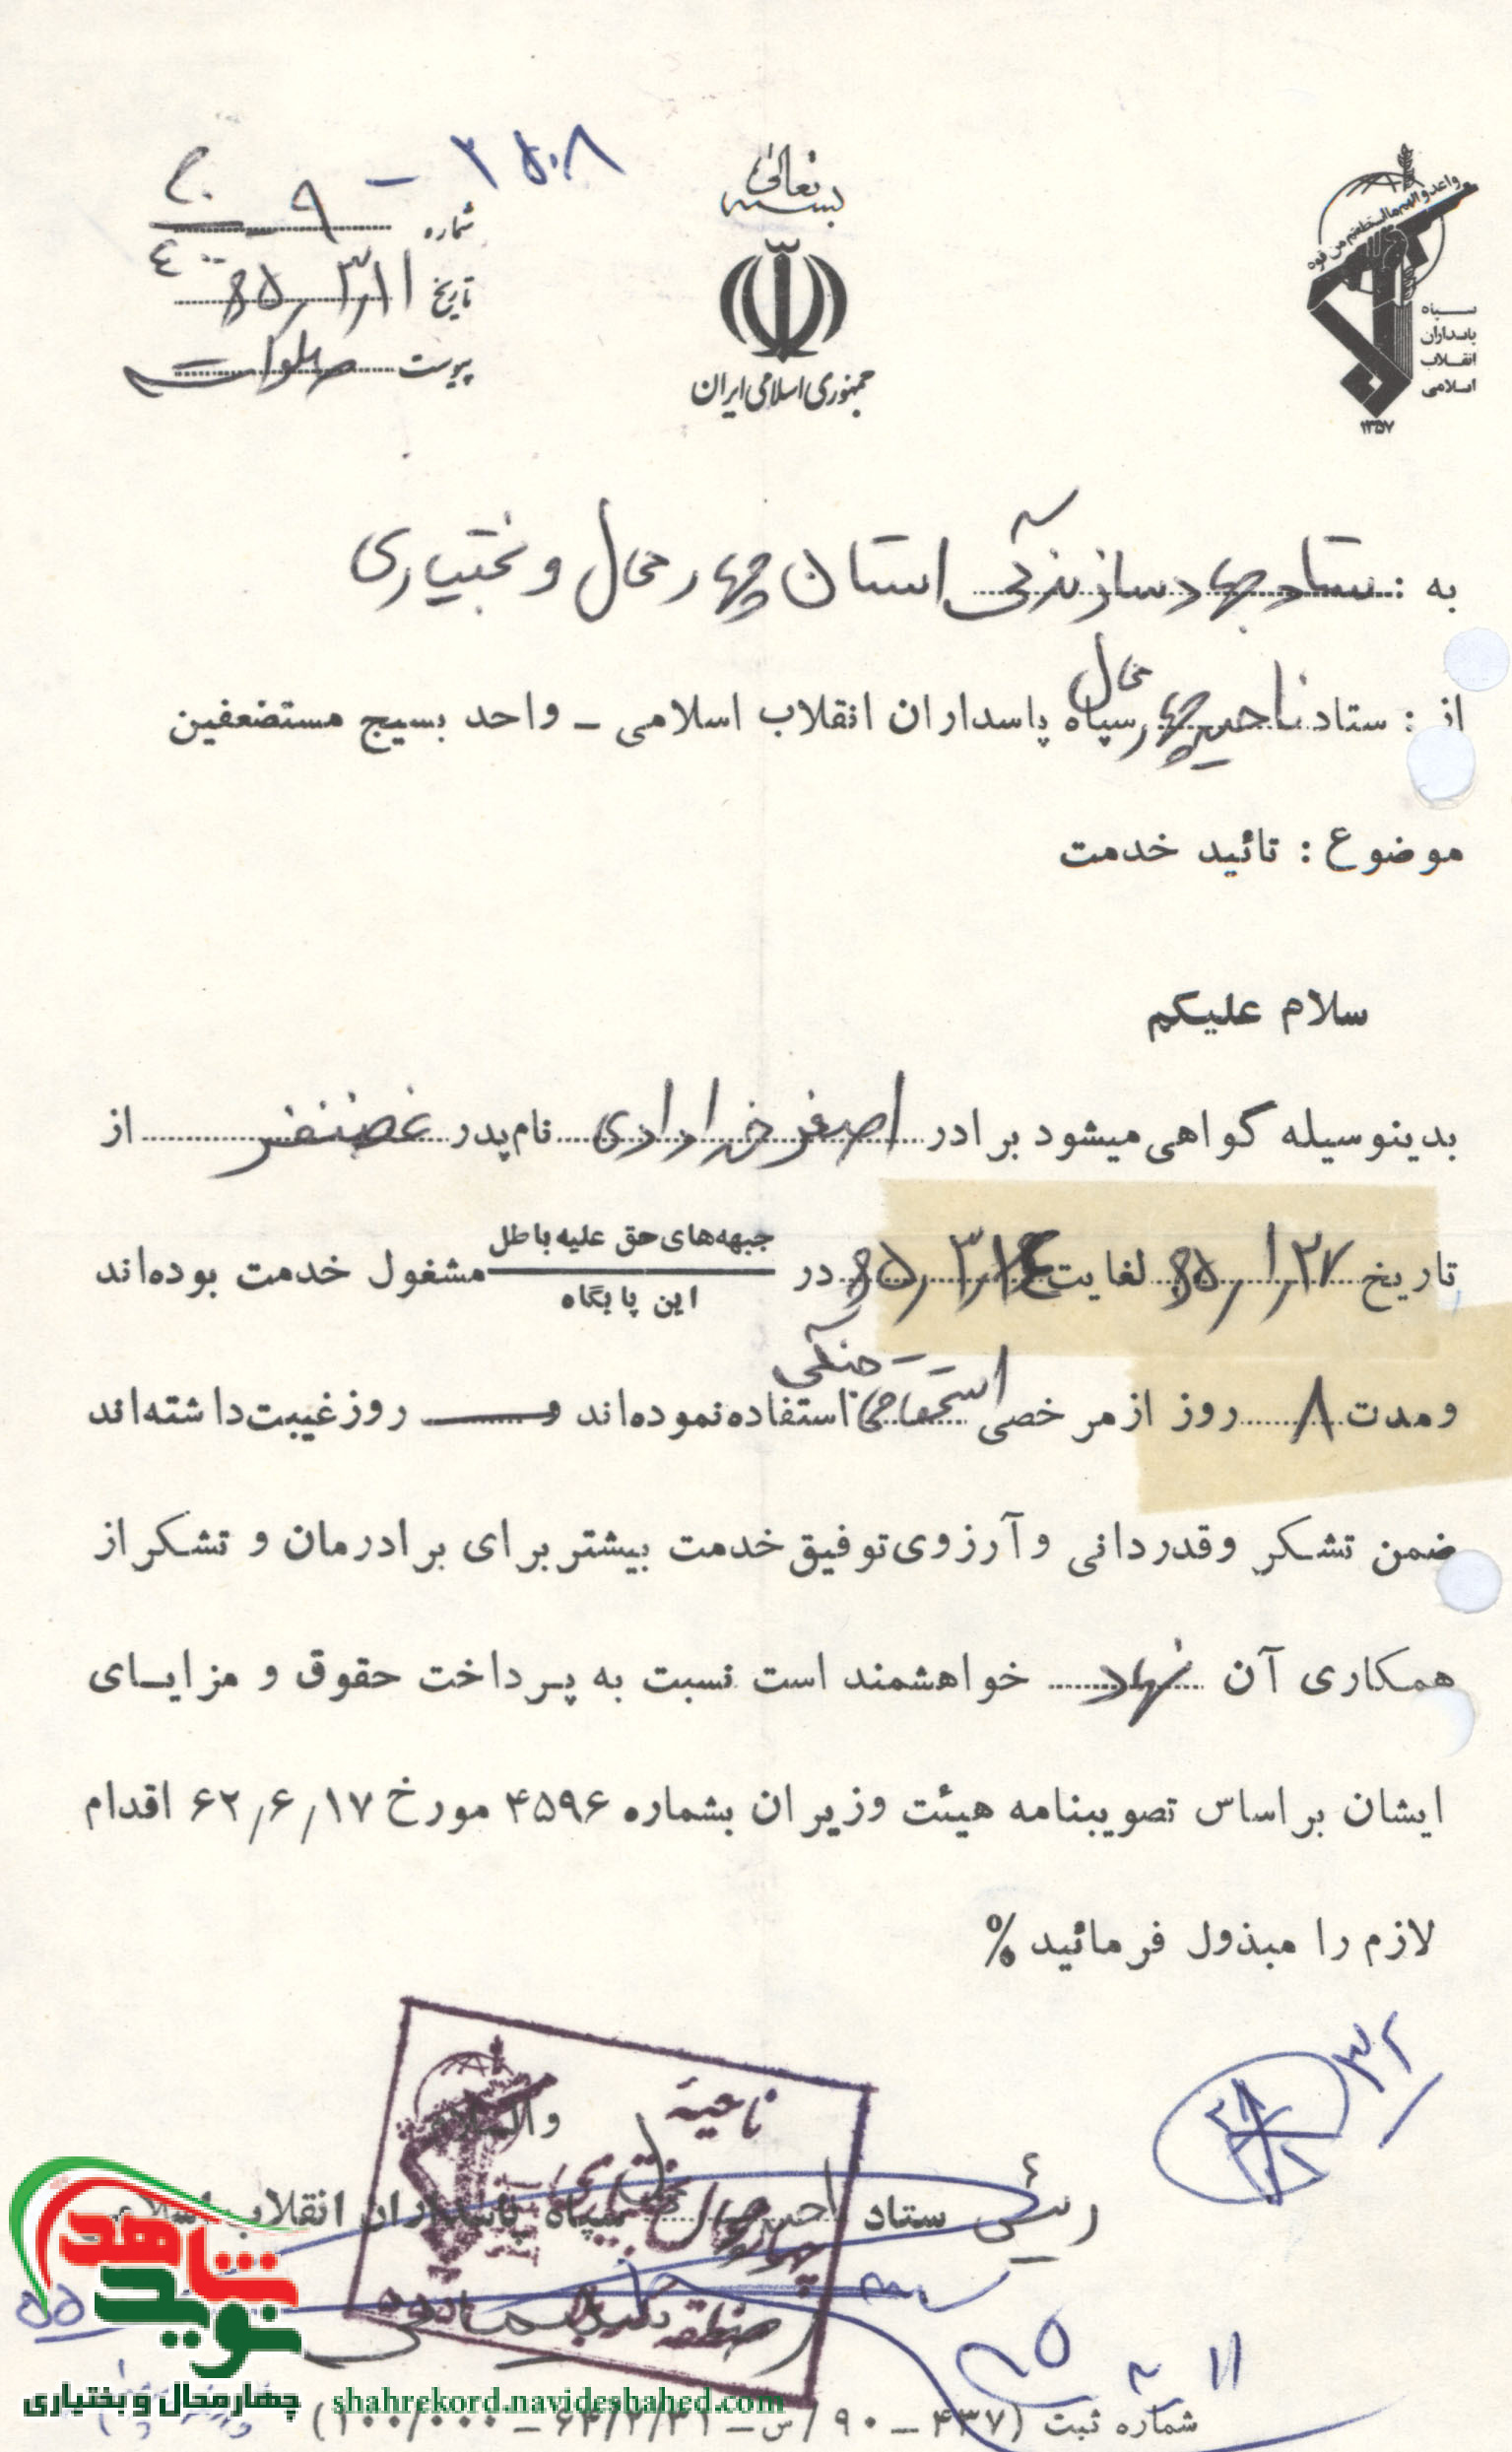 بسمه تعالی
جمهوری اسلامی ایران
واعدوا لهم ما استطعتم من قوه
سپاه
پاسداران
انقلاب
اسلامی
۱۳۵۷
۲۵۰۸ –
شماره ۹
تاریخ ۶۵/۳/۱۱
پیوست صلوات
به : ستاد جهاد سازندگی استان چهارمحال و بختیاری
از : ستاد ناحیه چهارمحال سپاه پاسداران انقلاب اسلامی – واحد بسیج مستضعفین
موضوع : تائید خدمت
سلام علیکم
بدینوسیله گواهی میشود برادر اصغر خدادادی نام پدر غضنفر از
تاریخ ۶۵/۱/۲۷ لغایت ۶۵/۳/۱۴ در جبهه‌های حق علیه باطل
این پایگاه مشغول خدمت بوده‌اند
و مدت ۸ روز از مرخصی استحقاقی جنگی استفاده نموده‌اند و — روز غیبت داشته‌اند
ضمن تشکر و قدردانی و آرزوی توفیق خدمت بیشتر برای برادرمان و تشکر از
همکاری آن نهاد خواهشمند است نسبت به پرداخت حقوق و مزایای
ایشان براساس تصویبنامه هیئت وزیران بشماره ۴۵۹۶ مورخ ۶۲/۶/۱۷ اقدام
لازم را مبذول فرمائید %
ناحیه
چهارمحال بختیاری
منطقه
رئیس ستاد ناحیه سپاه پاسداران انقلاب اسلامی
شماره ثبت (۴۳۷ – ۹۰ / س – ۶۴/۲/۳۱ – ۱۰۰/۰۰۰)
نوید شاهد
چهارمحال و بختیاری
shahrekord.navideshahed.com